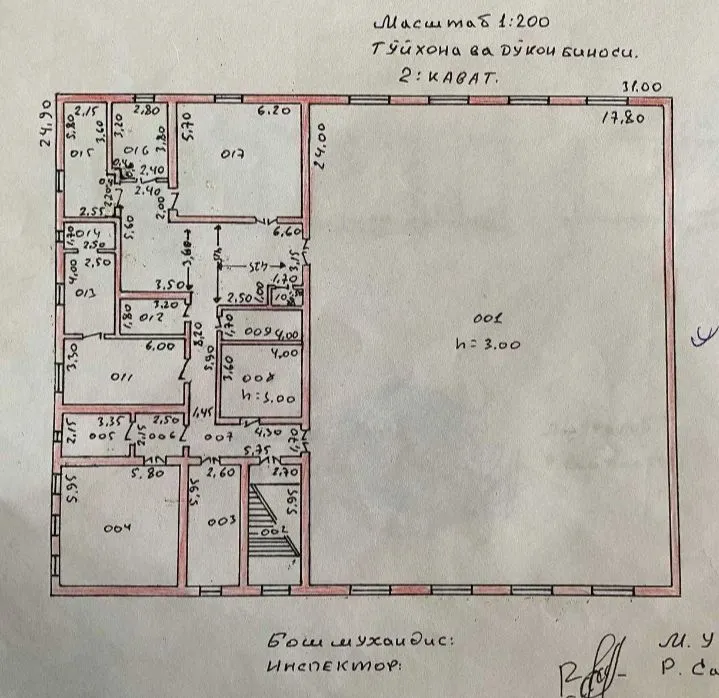 Масштаб 1:200
Тўйхона ва дўкон биноси.
2: Кават.
31.00
24,90
17,80
24,00
2,15
5,80
3,60
015
2,80
3,20
016
3,80
2,40
6.20
5,70
017
2.40
2,20
2,00
2.55
014
1,70
2,50
5,60
6.60
3,60
4,25
3,15
2,50
4,00
013
3.50
2,50
1,00
1,70
10
3.20
012
1,80
8,20
1,70
009
4,00
001
h = 3.00
6,00
3,30
011
5,90
4,00
3,60
008
h = 3.00
1,45
3,35
2,50
2,15
005
2,15
006
007
4,30
1,70
5,75
5.80
2,60
2,70
5,95
004
5,95
003
5,95
002
Бош мухандис:
М. У
Инспектор:
Р. Са